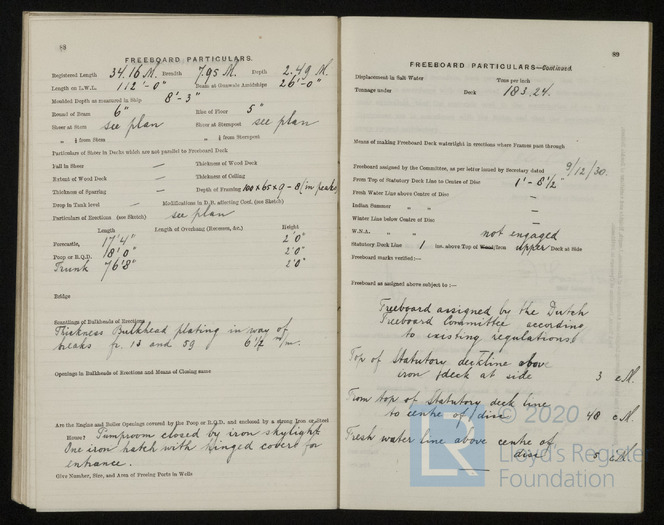 88
FREEBOARD PARTICULARS.
Registered Length 34.16 M. Breadth 7.95 M. Depth 2.49 M.
Length on L.W.L. 112'-0" Beam at Gunwale Amidships 26'-0"
Moulded Depth as measured in Ship 8'-3"
Round of Beam 6" Rise of Floor 5"
Sheer at Stem see plan Sheer at Sternpost see plan
" ⅛ from Stem " ⅛ from Sternpost
Particulars of Sheer in Decks which are not parallel to Freeboard Deck
Fall in Sheer — Thickness of Wood Deck
Extent of Wood Deck — Thickness of Ceiling
Thickness of Sparring — Depth of Framing 100 x 65 x 9 - 8 (in peaks
Drop in Tank level — Modifications in D.B. affecting Coef. (see Sketch)
Particulars of Erections (see Sketch) see plan
Length Length of Overhang (Recesses, &c.) Height
Forecastle, 17'4" 2'0"
Poop or R.Q.D. 18'0" 2'0"
Trunk 76'8" 2'0"
Bridge
Scantlings of Bulkheads of Erections
Thickness Bulkhead plating in way of
breaks fr. 13 and 59 6½ m/m.
Openings in Bulkheads of Erections and Means of Closing same
Are the Engine and Boiler Openings covered by the Poop or R.Q.D. and enclosed by a strong Iron or Steel
House? Pumproom closed by iron skylight
One iron hatch with hinged covers for
entrance.
Give Number, Size, and Area of Freeing Ports in Wells
89
FREEBOARD PARTICULARS—Continued.
Displacement in Salt Water Tons per inch
Tonnage under Deck 183.24.
Means of making Freeboard Deck watertight in erections where Frames pass through
Freeboard assigned by the Committee, as per letter issued by Secretary dated 9/12/30.
From Top of Statutory Deck Line to Centre of Disc 1'-8½"
Fresh Water Line above Centre of Disc —
Indian Summer " " —
Winter Line below Centre of Disc —
W.N.A. " " not engaged
Statutory Deck Line 1 ins. above Top of Wood/Iron upper Deck at Side
Freeboard marks verified:—
Freeboard as assigned above subject to:—
Freeboard assigned by the Dutch
Freeboard Committee according
to existing regulations
Top of Statutory deckline above
iron deck at side 3 c.M.
From top of Statutory deck line
to centre of disc 48 c.M.
Fresh water line above centre of
disc 5 c.M.
© 2020
LR
Lloyd's Register
Foundation